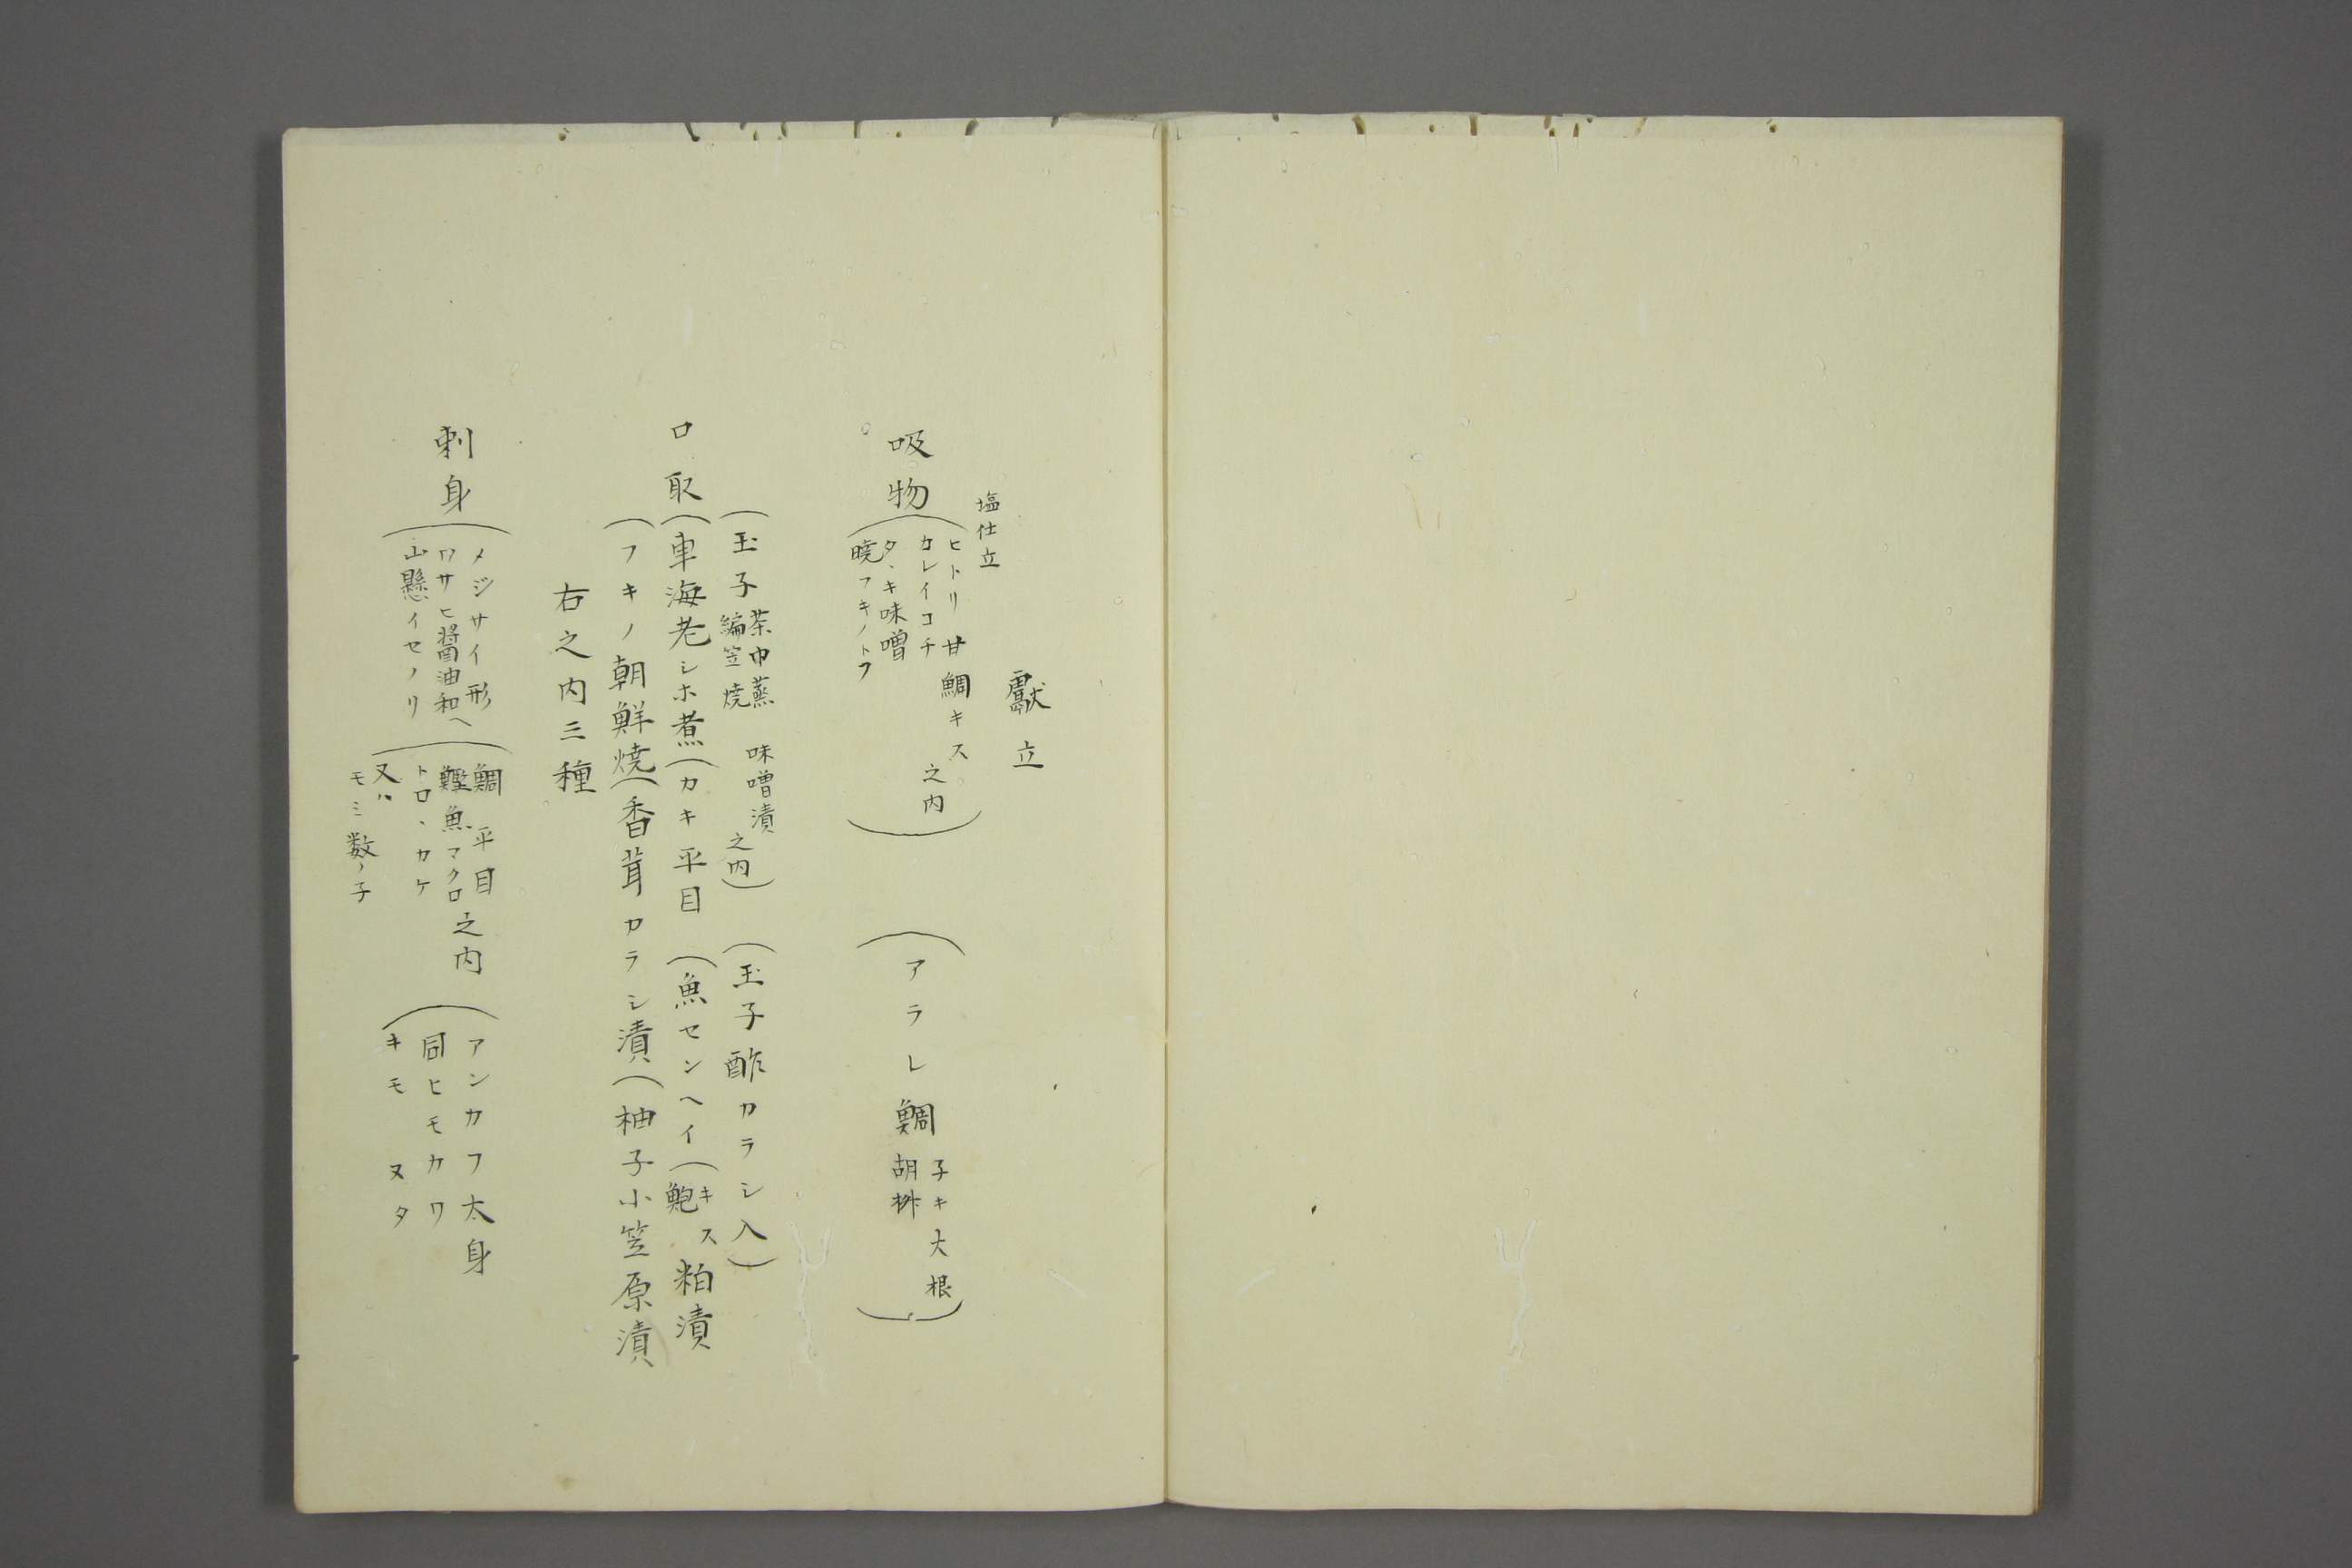 獻立
塩仕立
吸物
(ヒトリ甘鯛キス
カレイコチ 之内
タヽキ味噌
暁フキノトフ)
(アラレ鯛 子キ大根
胡椒)
口取
(玉子 茶巾蒸 味噌漬
編笠焼 之内)
(玉子酢カラシ入)
(車海老シホ煮(カキ平目(魚センヘイ(キス
鮑 粕漬
(フキノ朝鮮焼(香茸カラシ漬(柚子小笠原漬
右之内三種
刺身
(メジサイ形
ワサヒ醤油和ヘ
山懸イセノリ
(鯛 平目
鰹魚マクロ 之内
トロヽカケ
又ハ
モミ数ノ子
(アンカフ太身
同ヒモカワ
キモヌタ